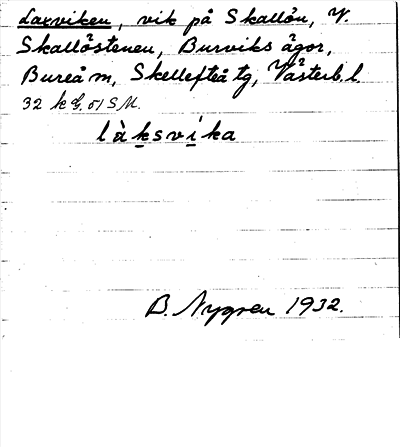 Laxviken, vik på Skallön, V.
Skallöstenen, Burviks ägor,
Bureå m, Skellefteå tg, Västerb. l.
32 k G. 51 S M.
làksvíka
B. Nygren 1932.